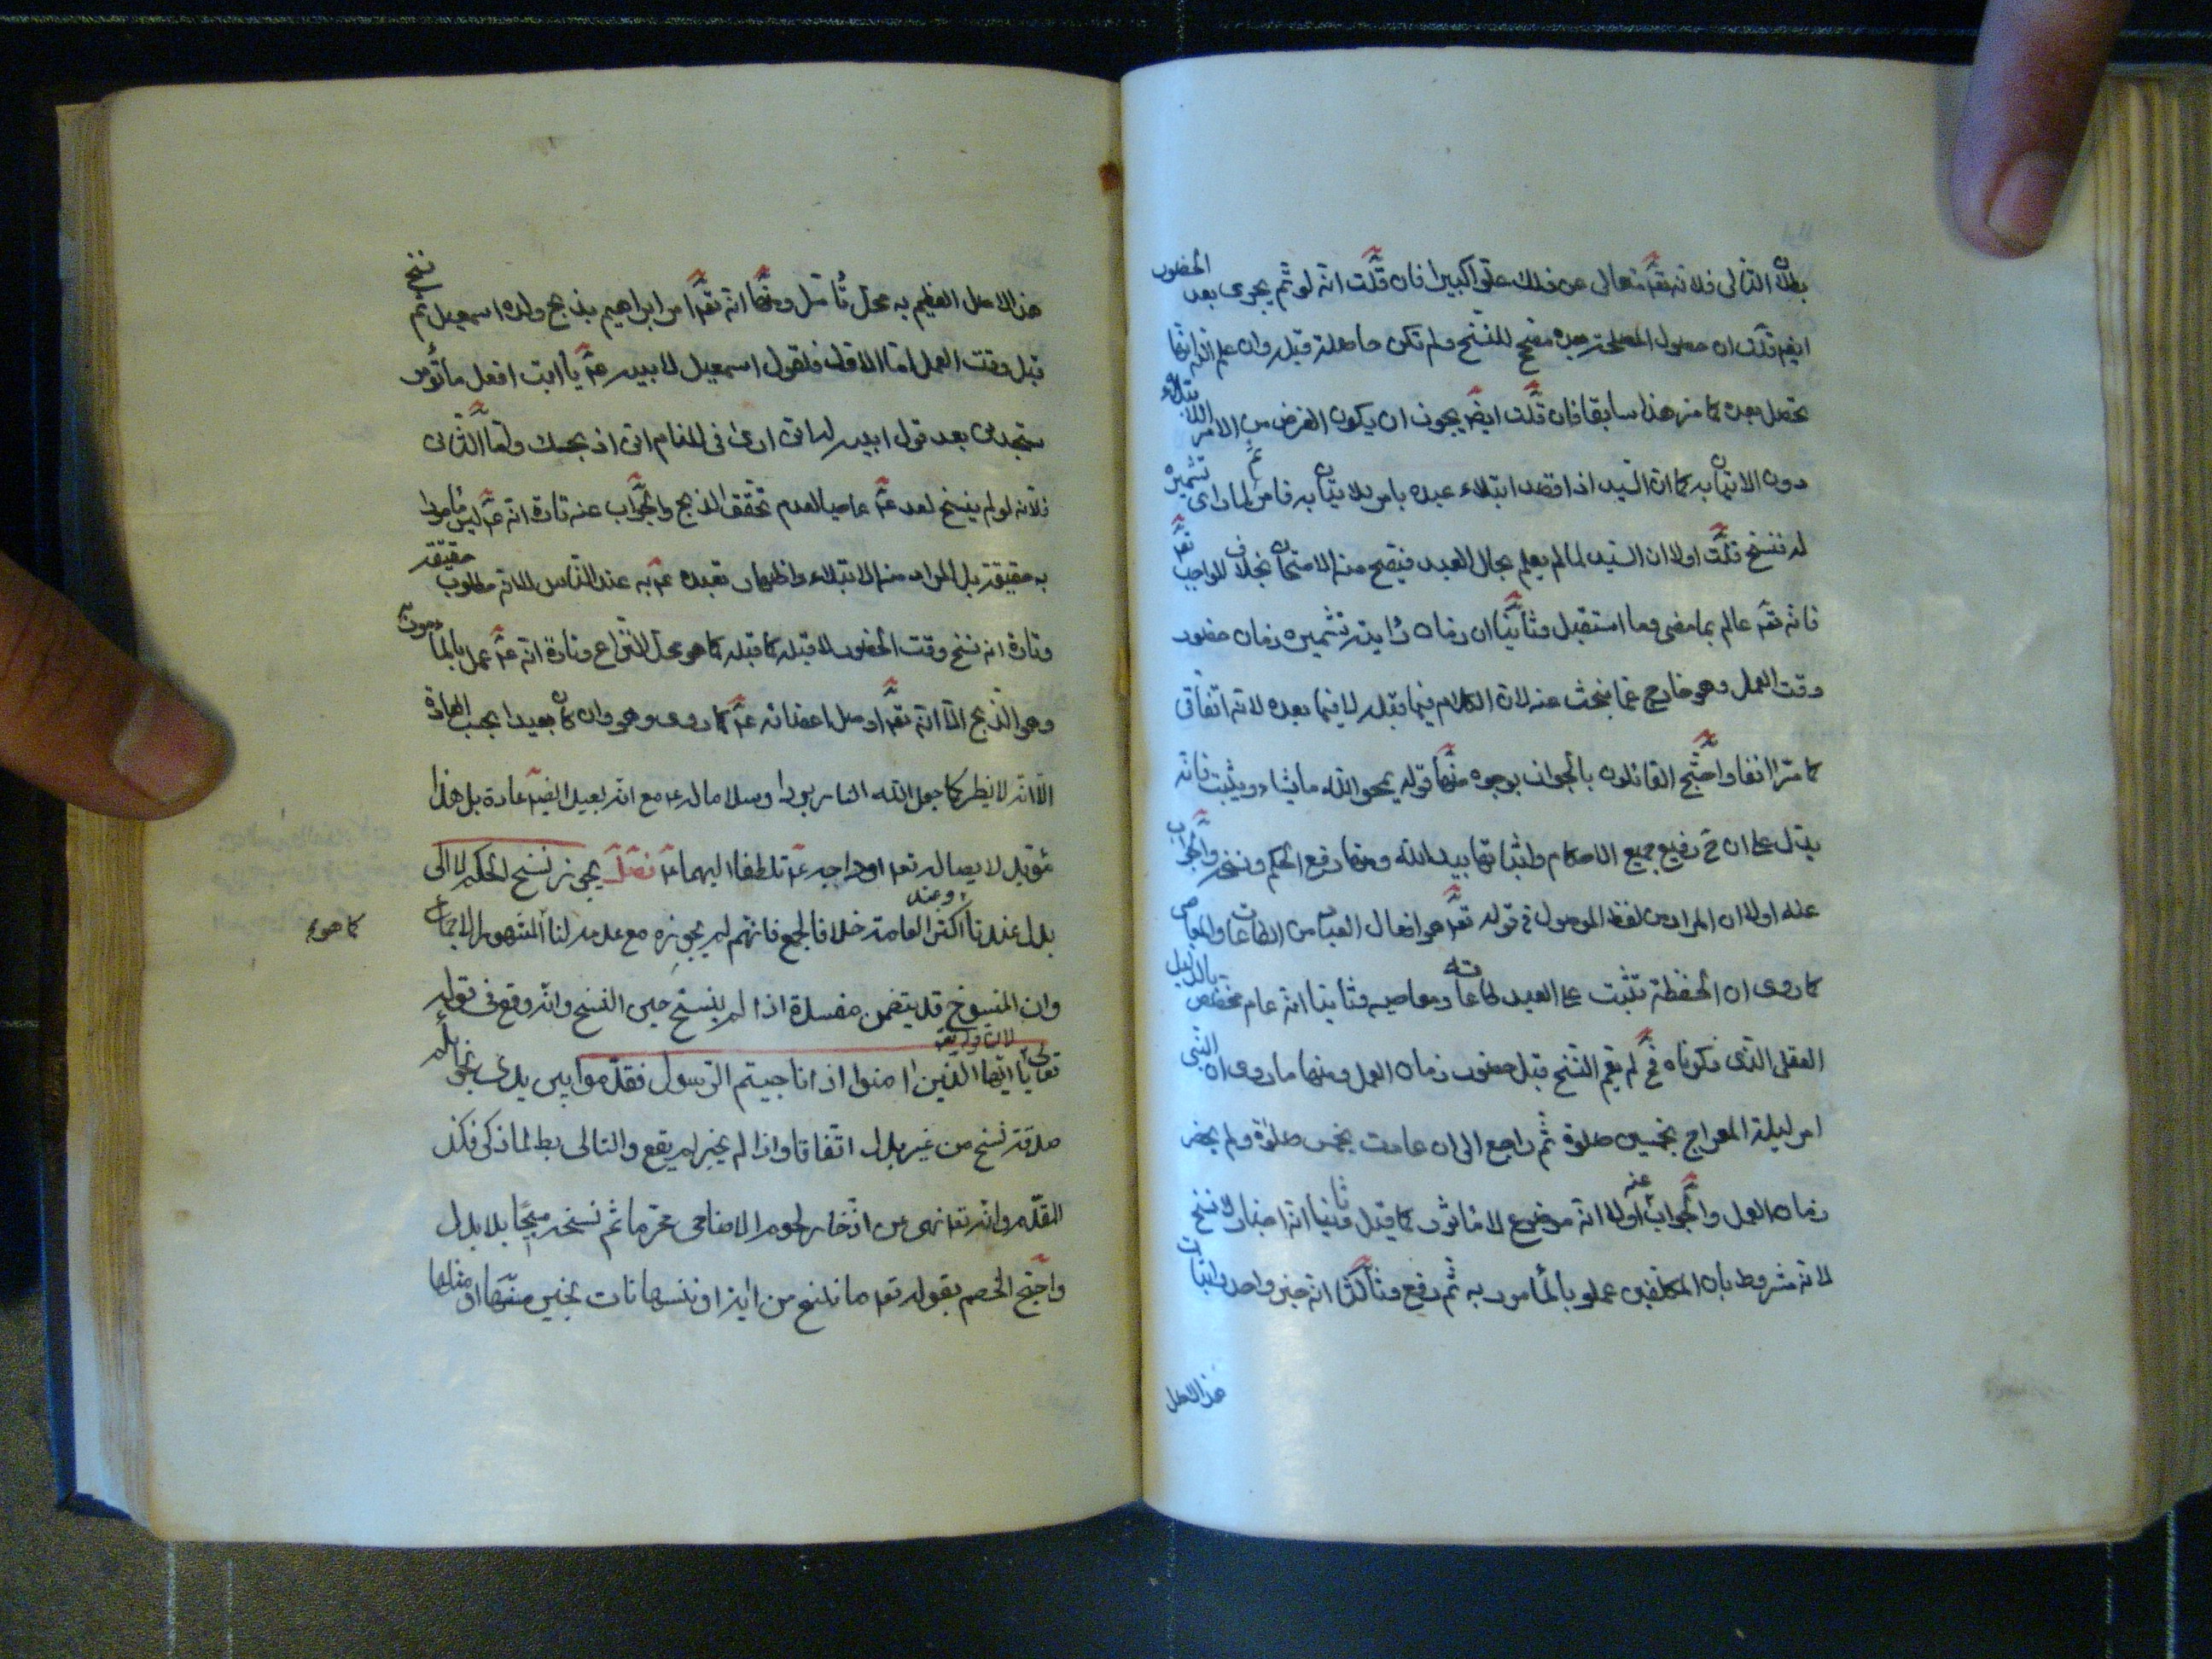 بطلان التالى فلانه تعـ متعالى عن ذلك علوا كبيرا فان قلت انه لو تم يجرى بعد الحضور
ايضا قلت ان حصول المصلحة بعده مقتح للنسخ ولم تكن حاصلة قبله وان علم الله انها
تحصل بعده كما مر هذا سابقا فان قلت ايضا يجوز ان يكون الغرض من الامر الابتلاء
دون الاتيان به كما ان السيد اذا قصد ابتلاء عبده يامر بالاتيان به فامر ثم لما راى تشميره
له فنسخ قلت اولا ان السيد لما لم يعلم بحال العبد فيصح منه الامتحان بخلاف الواجب تعـ
فانه تعـ عالم بما مضى وما استقبل وثانيا ان زمان رؤايته تشميره زمان حضور
وقت العمل وهو خارج عما نبحث عنه لان الكلام فيما قبله لا فيما بعده لانه اتفاقى
كما مر انفا واحتج القائلون بالجواز بوجوه منها قوله يمحو الله ما يشاء ويثبت فانه
يدل على ان رفع جميع الاحكام واثباتها بيد الله ومنها رفع الحكم ونسخه والجواب
عنه اولا ان المراد من لفظ الموصول فى قوله تعـ هو افعال العباد من الطاعات والمعاصى
كما روى ان الحفظة تثبت على العبد طاعاته ومعاصيه وثانيا انه عام مخصص بالدليل
العقلى الذى ذكرناه فح لم يقع النسخ قبل حضور زمان العمل ومنها ما روى ان النبى
امر ليلة المعراج بخمسين صلوة ثم راجع الى ان عادت بخمس صلوة ولم يحضر
زمان العمل والجواب عنه اولا انه موضوع لا ماثور كما قيل وثانيا انه اخبار لا نسخ
لانه مشروط بان المكلفين عملو بالمأمور به ثم رفع وثالثا انه خبر واحد واثبات
هذا الاصل
هذا الاصل العظيم به محل تأمل ومنها انه تعـ امر ابراهيم بذبح ولده اسمعيل ثم نسخ
قبل وقت العمل اما الاول فلقول اسمعيل لابيه عـ يا ابت افعل ما تؤمر
ستجدنى بعد قول ابيه له انى ارى فى المنام انى اذبحك واما الثانى
فلانه لو لم ينسخ لعد عـ عاصيا لعدم تحقق الذبح والجواب عنه تارة انه عـ ليس مأمورا
به حقيقة بل المراد منه الابتلاء واظهار تعبده عـ به عند الناس لا انه مطلوب حقيقة
وتارة انه نسخ وقت الحضور لا قبله كما قبله كما هو محل النزاع وتارة انه عـ عمل بالمأمور
وهو الذبح الا انه تعـ اوصل اعضائه عـ كما روى وهو وان كان بعيدا بحسب العادة
الا انه لا نظر كما جعل الله النار بردا وسلاما له عـ مع انه بعيد ايضا عادة بل هذا
مؤيد لايصاله تعـ اوداجه عـ تلطفا اليهما عـ فصل يجوز نسخ الحكم لا الى
بدل عندنا وعند اكثر العامة خلافا لجمع فانهم لم يجوزه مع عدمه لنا الشهور الاجماع
كما هو
وان المنسوخ قد يتضمن مفسدة اذا لم ينسخ حين النسخ وانه وقع فى قوله
لان قوله تعـ
تعالى يا ايها الذين امنوا اذا ناجيتم الرسول فقدموا بين يدى نجويكم
صدقة نسخ من غير بدل اتفاقا واذا لم يجز لم يقع والتالى بط لما ذكر فكذا
المقدم وانه تعـ نهى عن ادخار لحوم الاضاحى محرما ثم نسخه مبيحا بلا بدل
واحتج الخصم بقوله تعـ ما ننسخ من اية او ننسها نات بخير منها او مثلها